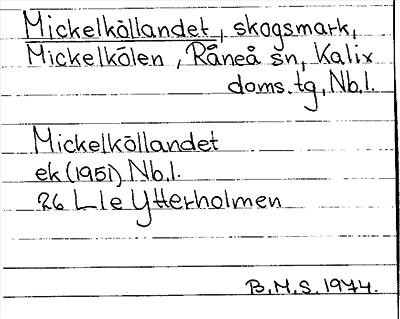 Mickelköllandet, skogsmark,
Mickelkölen, Råneå sn, Kalix
doms.tg, Nb.l.
Mickelköllandet
ek (1951) Nb.l.
26 L le Ytterholmen
B.M.S. 1974.